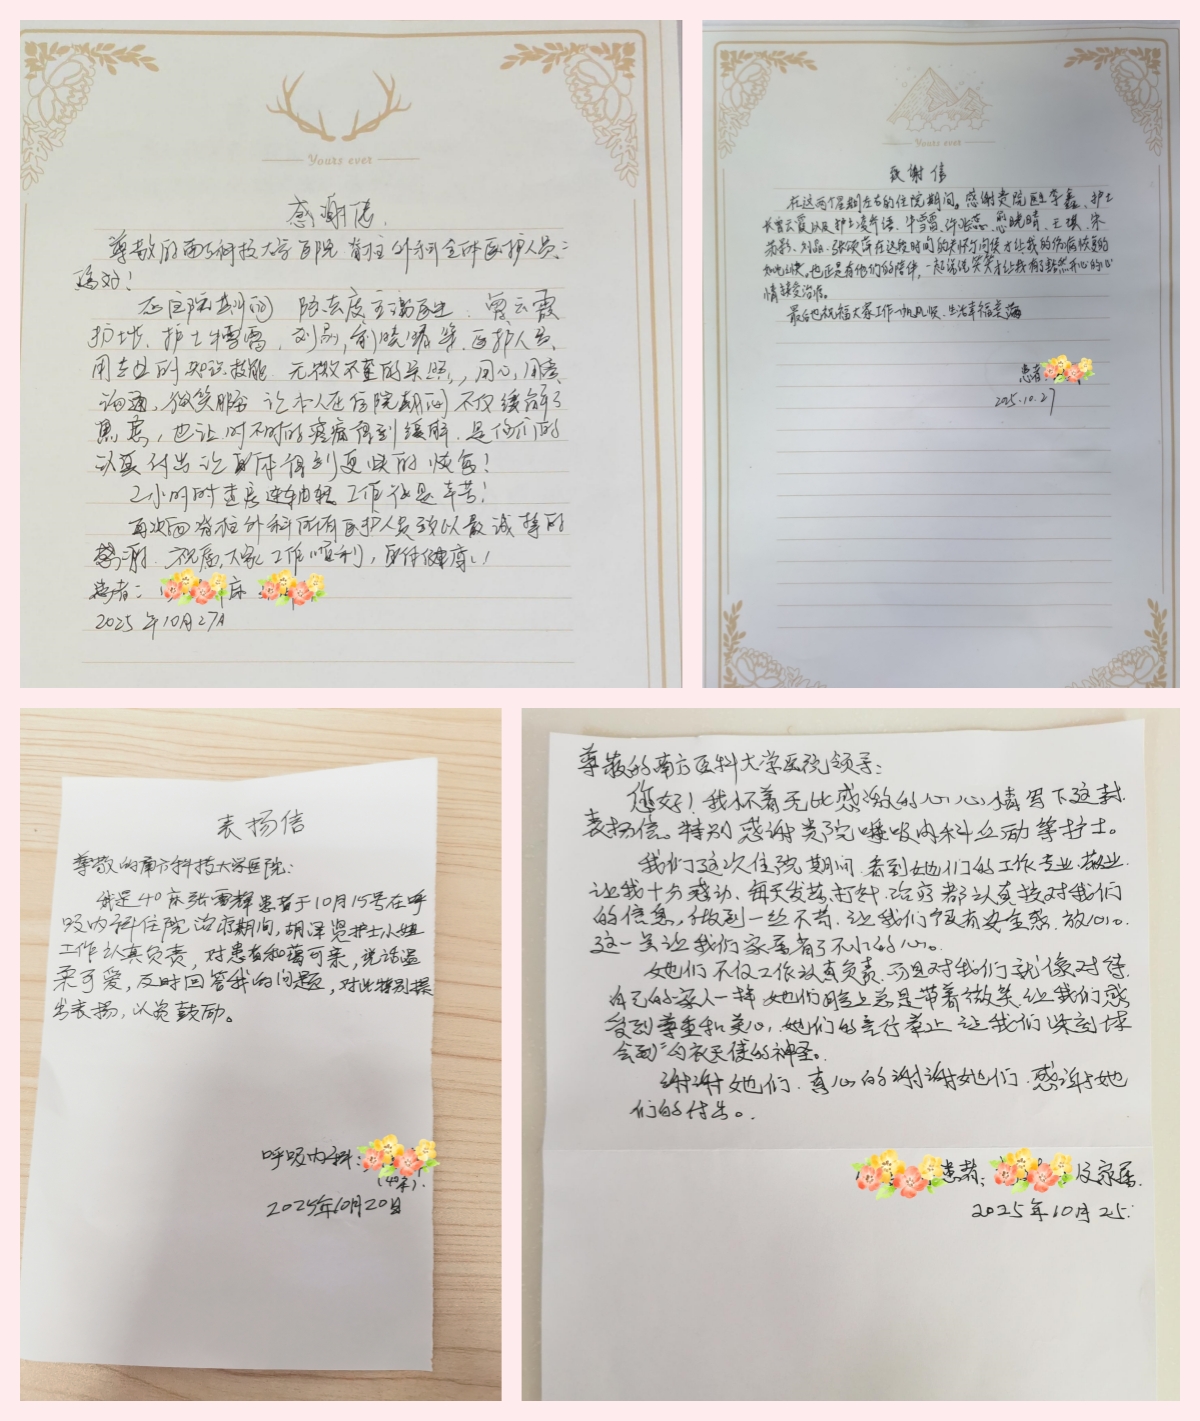 Yours ever
感谢信
尊敬的南方科技大学医院脊柱外科全体医护人员：
您好！
在住院期间 陈去度主治医生 曾云霞
护士长、护士 雪雷，刘品，晓晴等医护人员
用专业的知识技能 无微不至的关照，用心，用爱
沟通，微笑服务 让本人在住院期间不仅缓解了
焦急，也让时不时的疼痛得到缓解 是你们的
认真付出让身体得到更快的恢复！
2小时的查房连轴转 工作很是辛苦！
再次向脊柱外科所有医护人员致以最诚挚的
感谢 祝愿大家工作顺利，身体健康！
患者： 床
2025年10月27日
Yours ever
感谢信
在这两个星期左右的住院期间。感谢贵院医生李鑫、护士
长曾云霞以及护士 语、毕雪雷、许 燕、 晓晴、王琪、宋
刘品、张 萍在这段时间的关怀与问候才让我的伤病恢复的
如此之快。也正是有他们的陪伴，一起说说笑笑才让我有了豁然开心的心
情接受治疗。
最后也祝福大家工作一帆风顺 生活幸福美满
患者
2025.10.27
表扬信
尊敬的南方科技大学医院：
我是40床张雷辉患者于10月15号在呼
吸内科住院治疗期间，胡泽贤护士小姐
工作认真负责，对患者和蔼可亲，说话温
柔可爱，及时回答我的问题，对此特别提
出表扬，以资鼓励。
呼吸内科：
（40床）
2025年10月20日
尊敬的南方医科大学医院领导：
您好！我怀着无比感激的心心情写下这封
表扬信。特别感谢贵院呼吸内科丘励等护士。
我们这次住院期间 看到她们的工作专业、敬业
让我十分感动、每天发药、打针、治疗都认真核对我们
的信息，做到一丝不苟、让我们很有安全感、放心心。
这一关让我们家属省了不小的心。
她们不仅工作认真负责、而且对我们就像对待
自己的家人一样 她们脸上总是带着微笑、让我们感
受到尊重和关心，她们的言行举止 让我们深刻体
会到“白衣天使”的神圣。
谢谢她们、真心的谢谢她们、感谢她
们的付出。
患者： 及家属
2025年10月25.